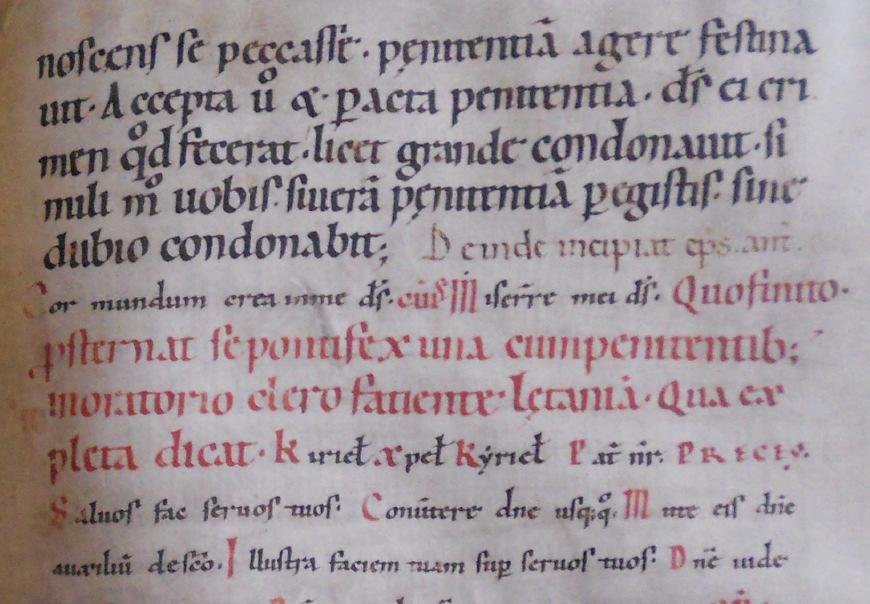 noscens se peccasse. pęnitentiā agere festina
uit. Accepta ū & p̲acta penitentia. d̄s ei cri
men qd̊ fecerat. licet grande condonauit. si
mili m̊ uobis. si uerā pęnitentiā p̲egistis. sine
dubio condonabit; Deinde incipiat ep̄s. ant̄.
Cor mundum crea inme d̄s. cū ps̄ Miser̄re mei d̄s. Quo finito.
p̲sternat se pontifex una cum penitentib;
in oratorio clero faciente lętaniā. Qua ex
pleta dicat. Kiriel̄ xp̄el̄ Kẏriel̄ Pat̄ nr̄. PRECES.
Saluos fac seruos tuos. Conu̅tere dn̄e usq;q̊. Mitte eis dn̄e
auxiliū de sc̄o. Illustra faciem tuam sup̲ seruos tuos. Dn̄e uide